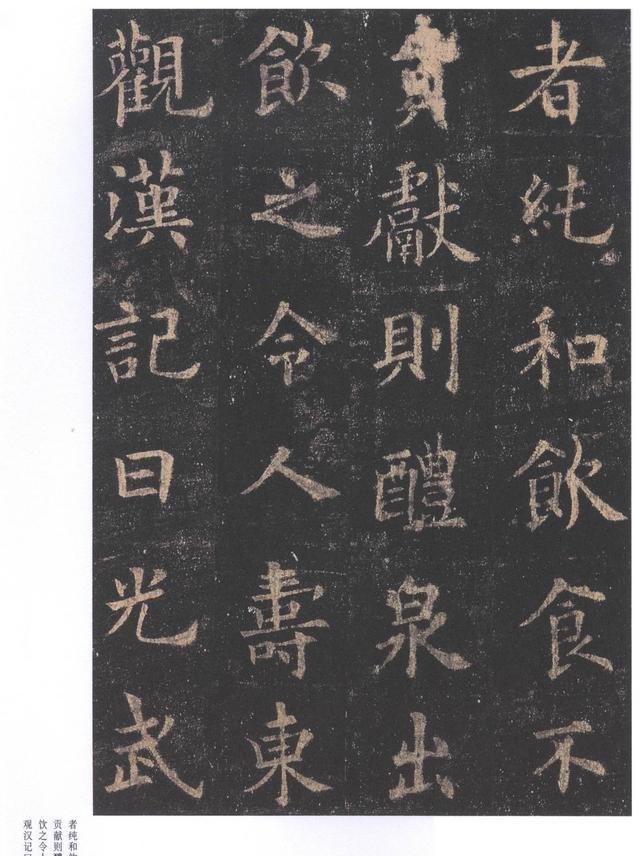 者純和飲食不
貢獻則醴泉出
飲之令人壽東
觀漢記曰光武
者纯和饮
贡献则醴
饮之令人
观汉记曰